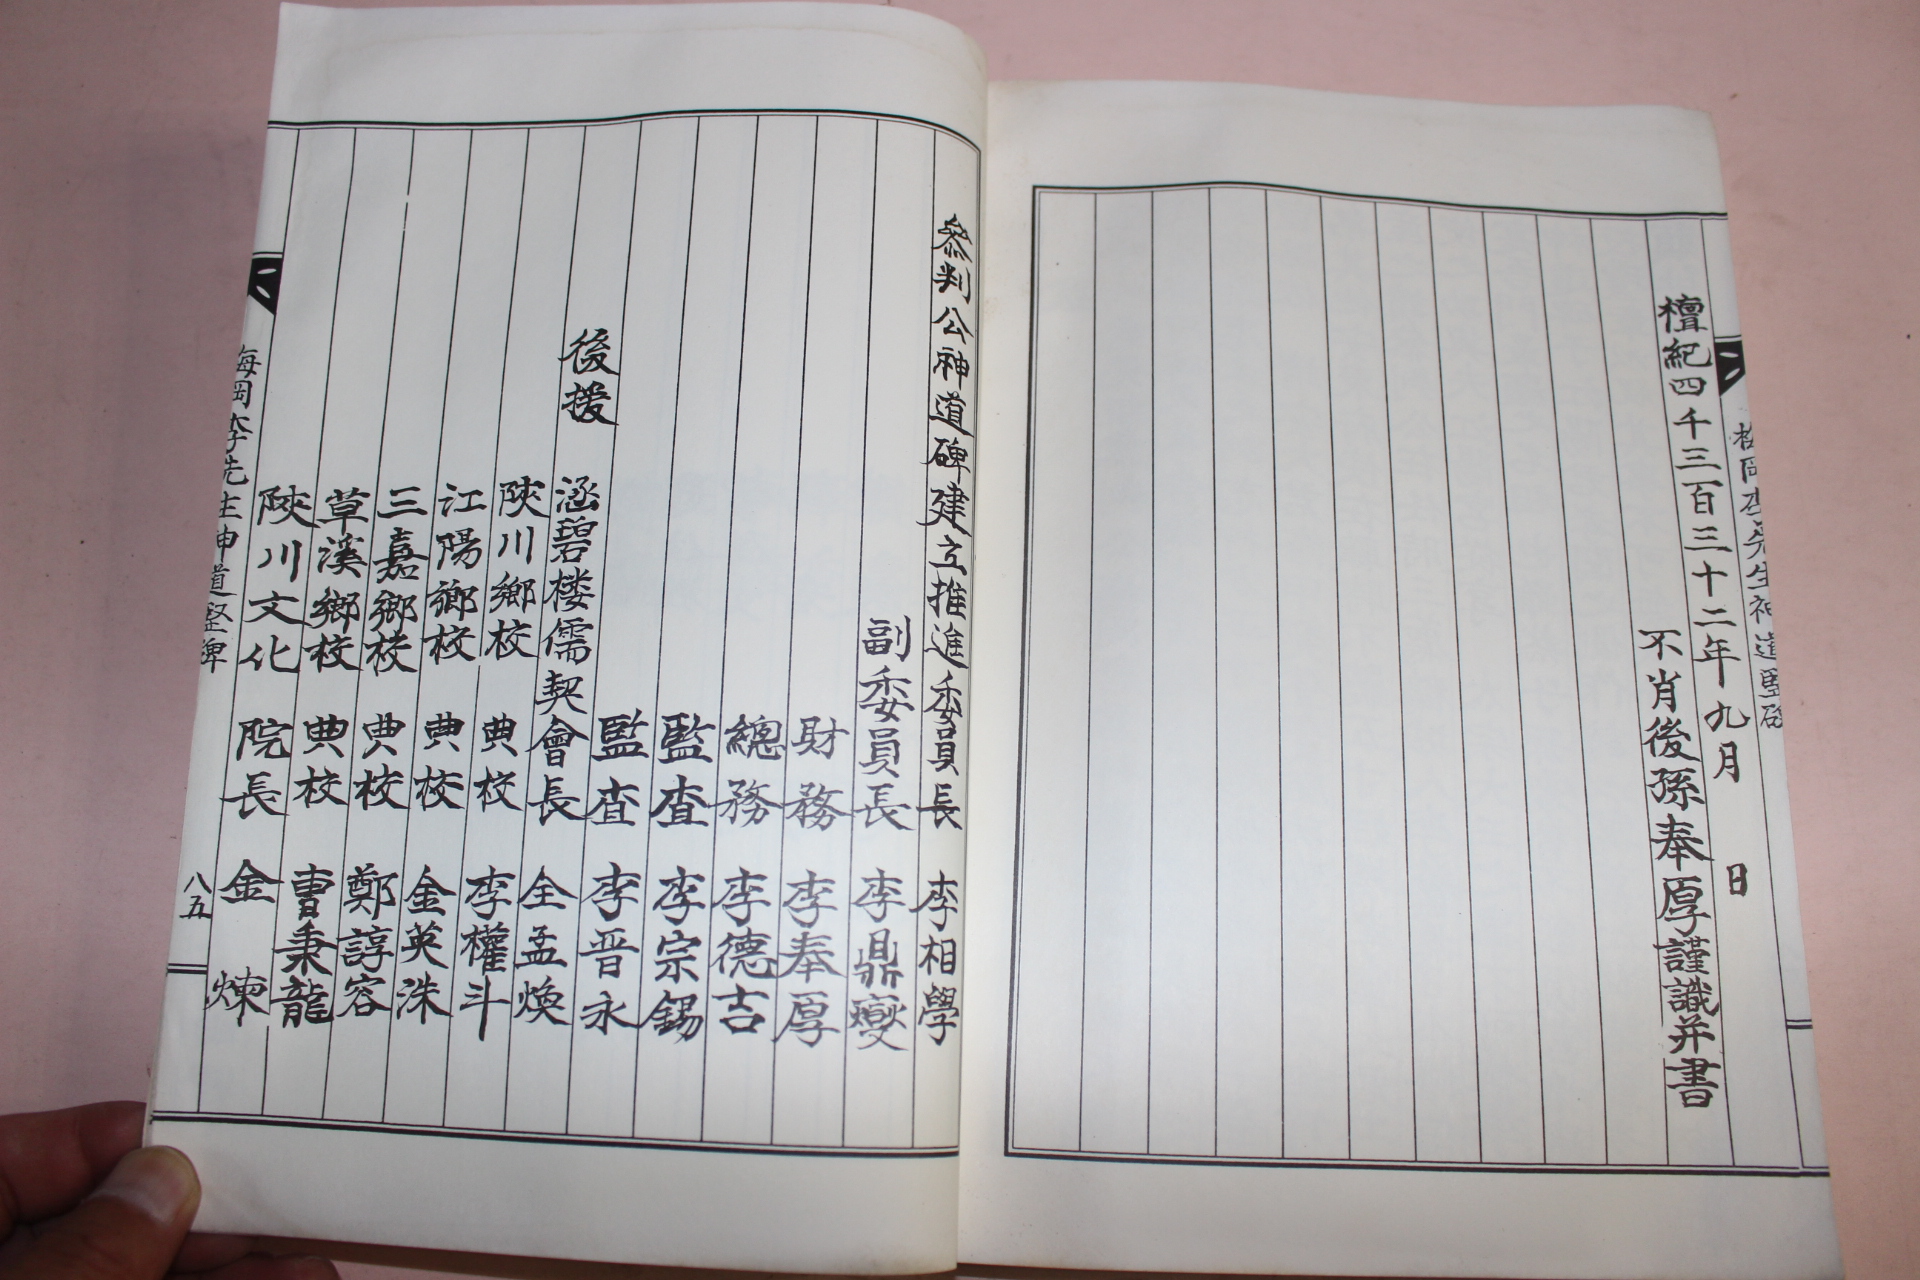 檀紀四千三百三十二年九月 日
不肖後孫奉厚謹識并書
參判公神道碑建立推進委員長 李相學
副委員長 李鼎燮
財務 李奉厚
總務 李德吉
監查 李宗錫
監查 李晋永
後援 涵碧楼儒契會長 全孟煥
陜川鄉校 典校 李權斗
江陽鄉校 典校 金英洙
三嘉鄉校 典校 鄭諄容
草溪鄉校 典校 曺秉龍
陜川文化 院長 金煉
岡李先生神道竪碑
八五